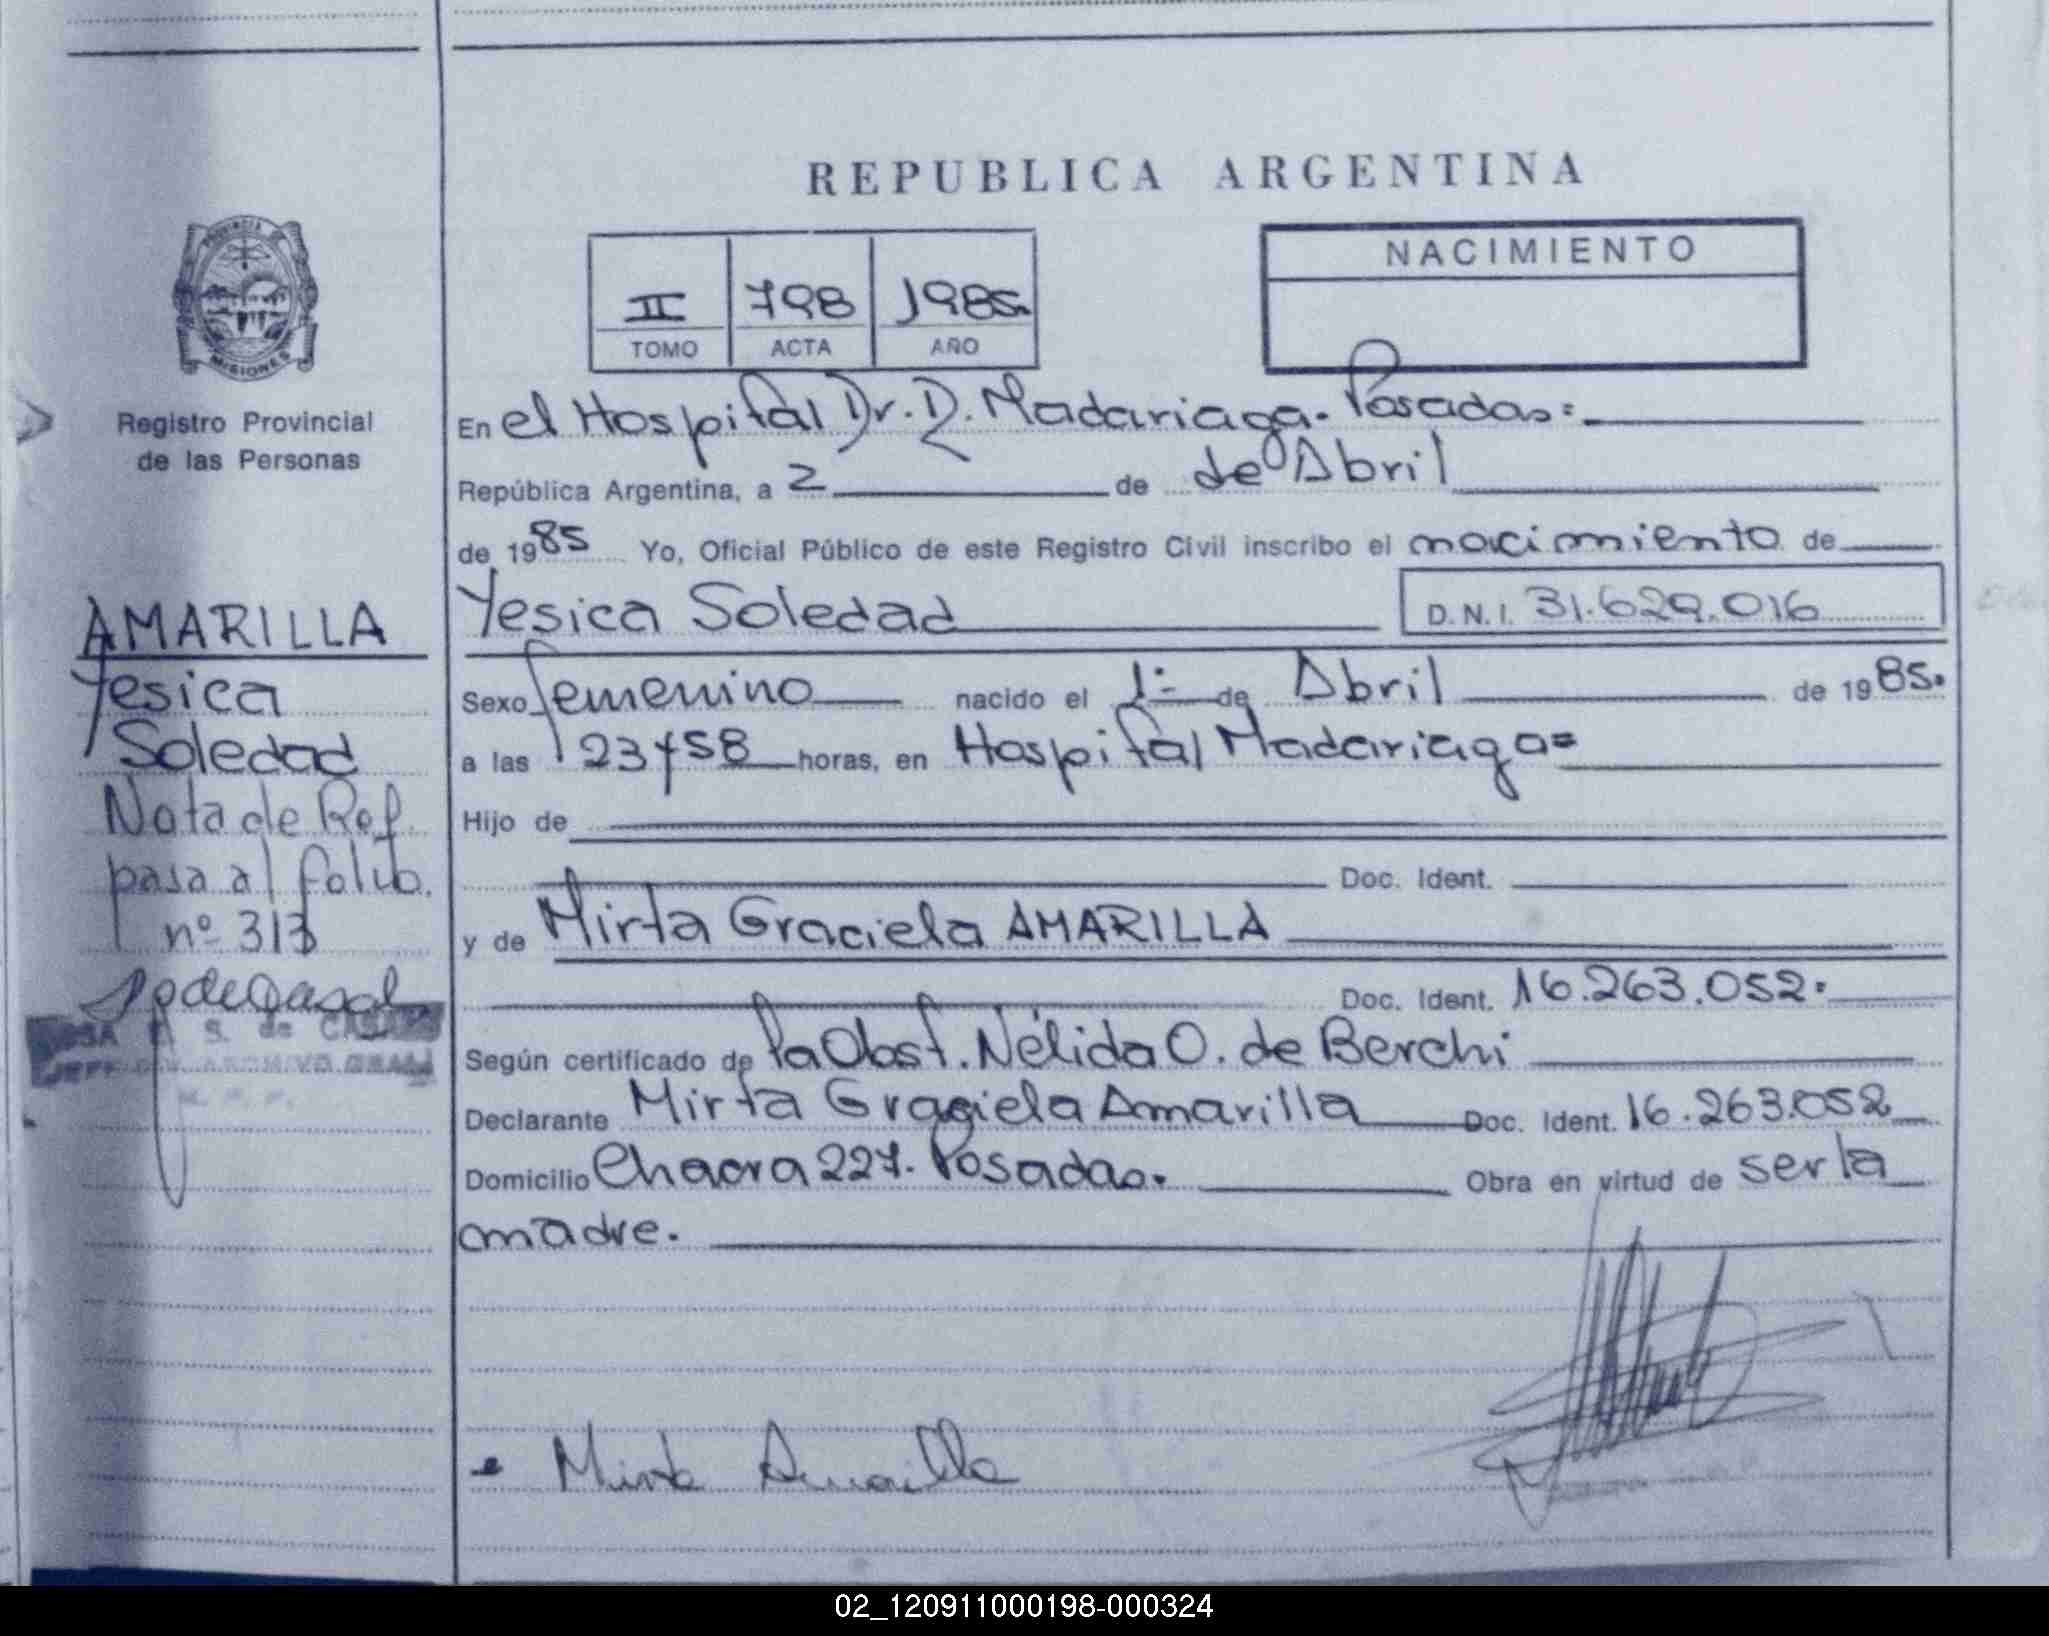 REPUBLICA ARGENTINA
PROVINCIA DE
MISIONES
Registro Provincial
de las Personas
II 798 1985.
TOMO ACTA AÑO
NACIMIENTO
En el Hospital Dr. R. Madariaga. Posadas=
República Argentina, a 2 de de Abril
de 1985 Yo, Oficial Público de este Registro Civil inscribo el nacimiento de
Yesica Soledad D.N.I. 31.629.016
Sexo femenino nacido el 1º de Abril de 1985.
a las 23y58 horas, en Hospital Madariaga=
Hijo de
Doc. Ident.
y de Mirta Graciela AMARILLA
Doc. Ident. 16.263.052.
Según certificado de la Obst. Nélida O. de Berchi
Declarante Mirta Graciela Amarilla Doc. Ident. 16.263.052
Domicilio Chacra 227. Posadas. Obra en virtud de ser la
madre.
Mirta Amarilla
AMARILLA
Yesica
Soledad
Nota de Ref.
pasa al folio.
nº 313
S. de
ARCHIVO GRAL
02_120911000198-000324